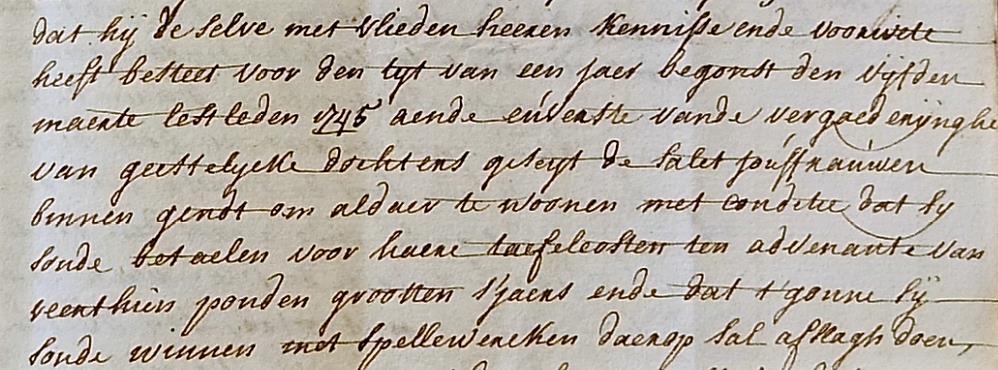 dat hij de selve met vlieden heeren kennisse ende voorwete
heeft besteet voor den tyt van een jaer begonst den vijfden
maerte lestleden 1745 aende euverste vande vergaederijnghe
van geestelycke dochters geseyt de salet jouffrauwen
binnen gendt om aldaer te woonen met conditie dat sy
soude betaelen voor haere taefelcosten ten advenante van
veerthien ponden grooten s'jaers ende dat t'gonne sij
soude winnen met spellewercken daerop sal afslagh doen,